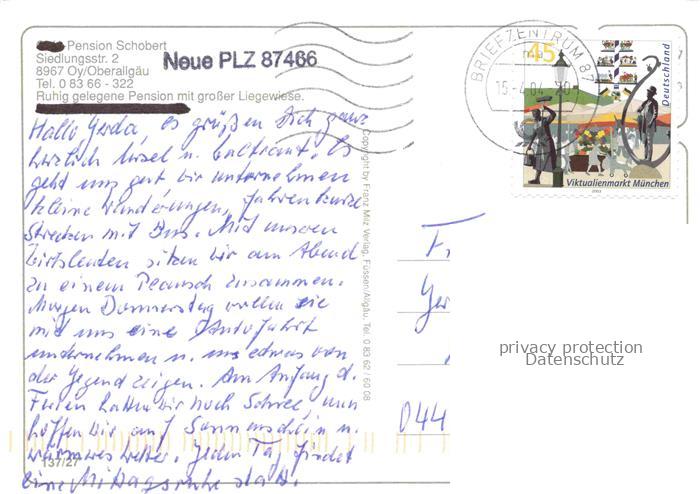 Pension Schobert
Siedlungsstr. 2
8967 Oy/Oberallgäu
Tel. 0 83 66 - 322
Ruhig gelegene Pension mit großer Liegewiese.
Neue PLZ 87466
Hallo Gerda, es grüßen Dich ganz
herzlich Ursel u. Waltraut. Es
geht uns gut wir unternehmen
kleine Wanderungen, fahren kurze
Strecken mit Bus. Mit unseren
Wirtsleuten sitzen wir am Abend
zu einem Plausch zusammen.
Morgen Donnerstag wollen sie
mit uns eine Autofahrt
unternehmen u. uns etwas von
der Gegend zeigen. Am Anfang d.
Ferien hatten wir noch Schnee, nun
hoffen wir auf Sonnenschein u.
wärmeres Wetter. Jeden Tag findet
eine Mittagsruhe statt.
137/27
Copyright by Franz Milz Verlag, Füssen/Allgäu, Tel. 0 83 62 / 60 08
BRIEFZENTRUM 87
45
Deutschland
Viktualienmarkt München
2003
F
Ger
044
privacy protection
Datenschutz